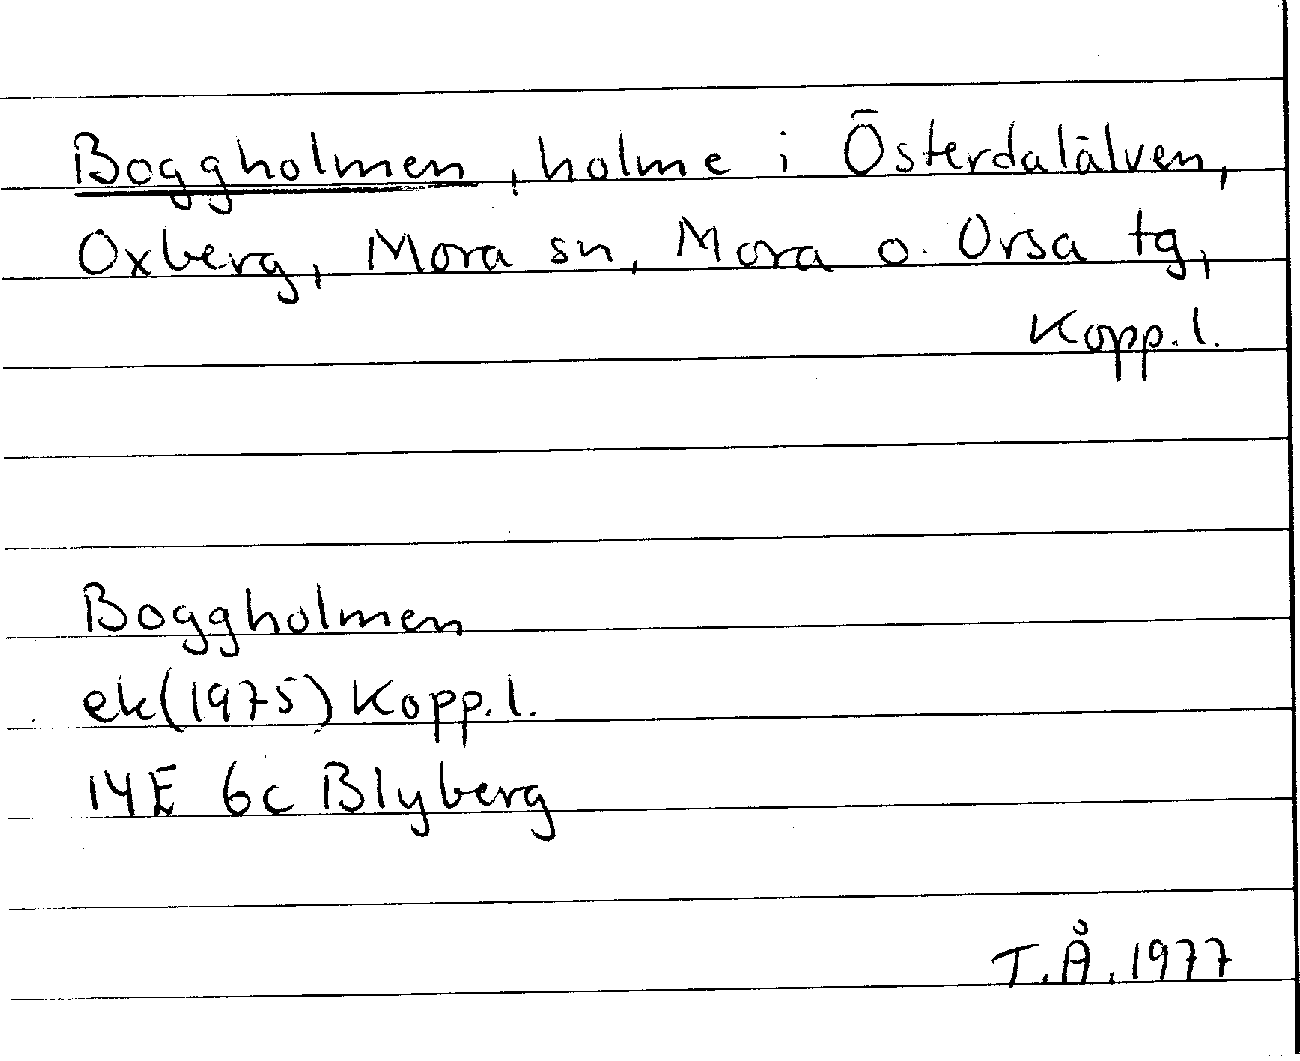 Boggholmen, holme i Österdalälven,
Oxberg, Mora sn, Mora o. Orsa tg,
Kopp.l.
Boggholmen
ek(1975) Kopp.l.
14E 6c Blyberg
T.Å. 1977